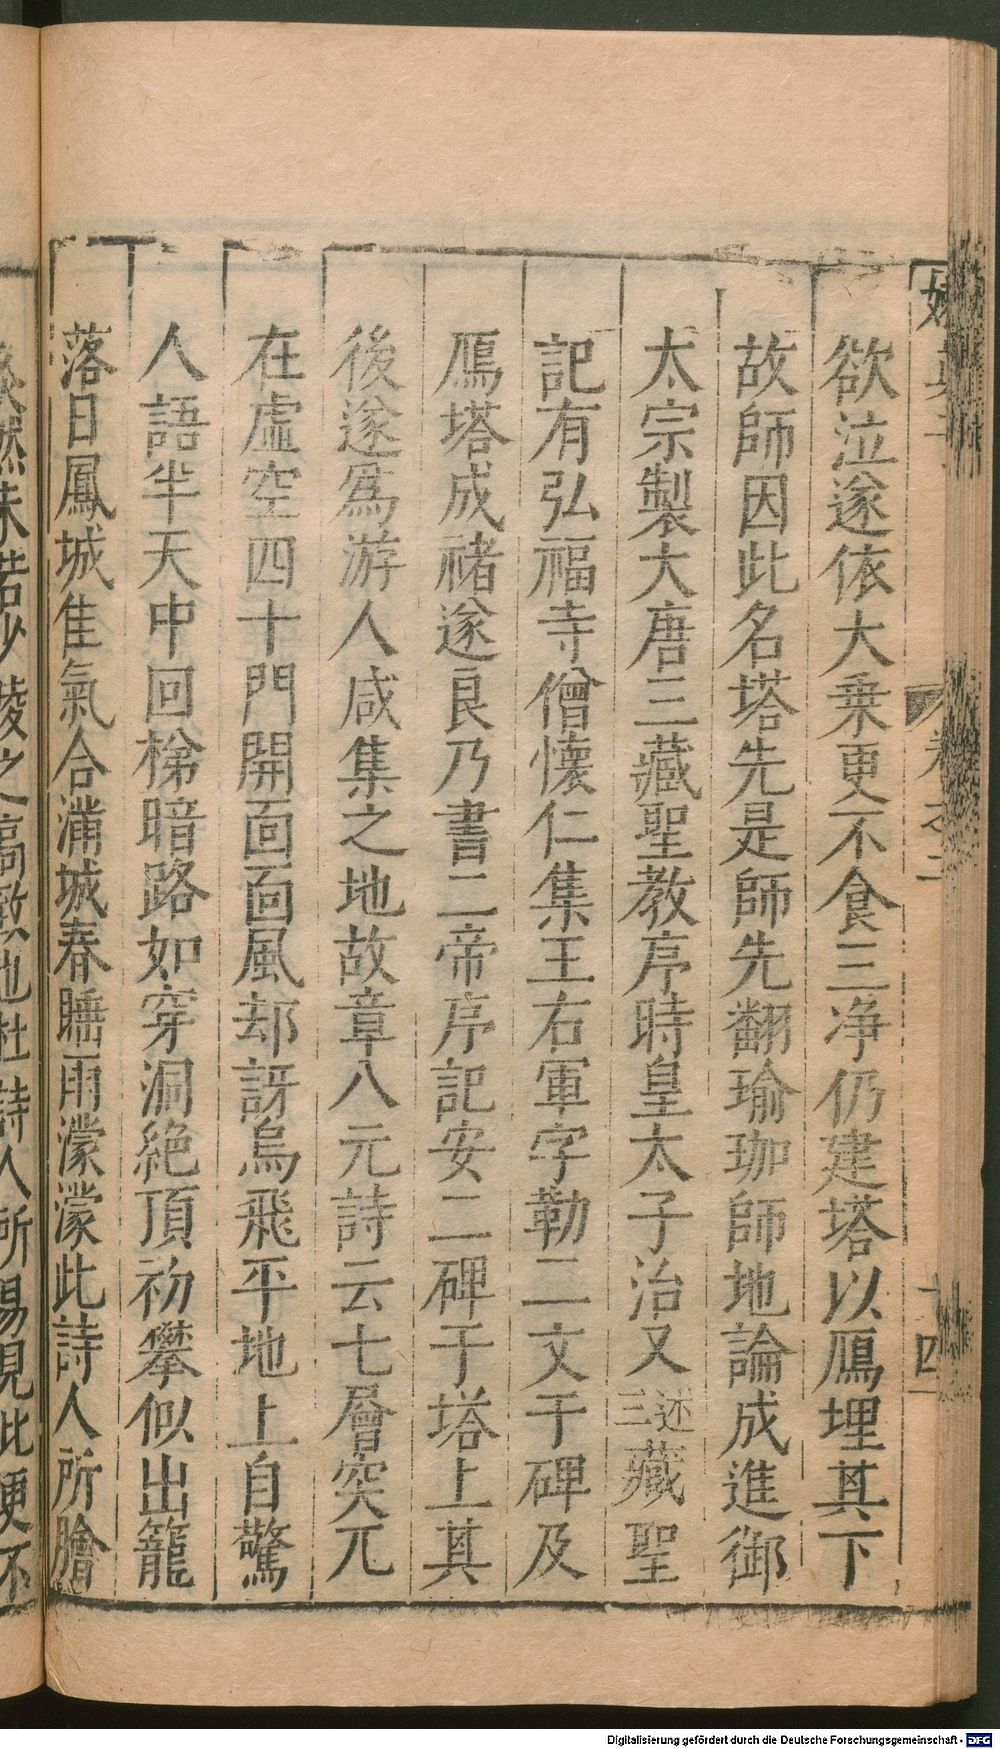 欲泣遂依大乗更不食三净仍建塔以鴈埋其下
故師因此名塔先是師先翻瑜珈師地論成進御
太宗製大唐三藏聖教序時皇太子治又述三藏聖
記有弘福寺僧懷仁集王右軍字勒二文于碑及
鴈塔成禇遂良乃書二帝序記安二碑于塔上其
後遂爲游人咸集之地故章八元詩云七層突兀
在虛空四十門開面面風却訝鳥飛平地上自驚
人語半天中回梯暗路如穿洞絶頂初攀似出籠
落日鳳城隹氣合滿城春睡雨濛濛此詩人所膾
然未若少陵之高致也杜詩人所易見此便不
卷之二
十四
Digitalisierung gefördert durch die Deutsche Forschungsgemeinschaft - DFG